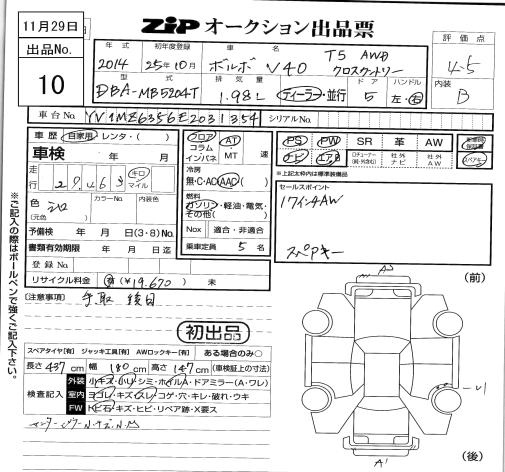 11月29日
ZIP オークション出品票
出品No.
10
年式 初年度登録 車名 評価点
2014 25年10月 ボルボ V40 T5 AWD クロスカントリー
4.5
型式 排気量 ドア ハンドル 内装
DBA-MB5204T 1.98L ディーラー・並行 5 左・右 B
車台No. YV1MZ6356E2031354 シリアルNo.
車歴 自家用・レンタ・( )
車検 年 月
走行 29,463 キロ マイル
色 シロ カラーNo. 内装色
(元色)
予備検 年 月 日(3・8)No.
書類有効期限 年 月 日迄
登録No.
リサイクル料金 有(¥19,670) 未
フロア コラム インパネ AT MT 速
冷房
無・C・AC・AAC
燃料
ガソリン・軽油・電気・その他( )
Nox 適合・非適合
乗車定員 5 名
PS PW SR 革 AW
ナビ エアB 社外ナビ 社外AW
スペアキー
※上記太枠内は標準装備品
セールスポイント
17インチAW
スペアキー
[注意事項]
初出品
スペアタイヤ[有] ジャッキ工具[有] AWロックキー[有] ある場合のみ〇
長さ 437cm 幅 180cm 高さ 147cm (車検証上の寸法)
検査記入
外装 小キズ・小凹・シミ・ホイルA・ドアミラー(A・ワレ)
室内 ヨゴレ・キズ・スレ・コゲ・穴・キレ・破れ・ウキ
FW トビ石・キズ・ヒビ・リペア跡・X要ス
(前)
(後)
※ご記入の際はボールペンで強くご記入下さい。